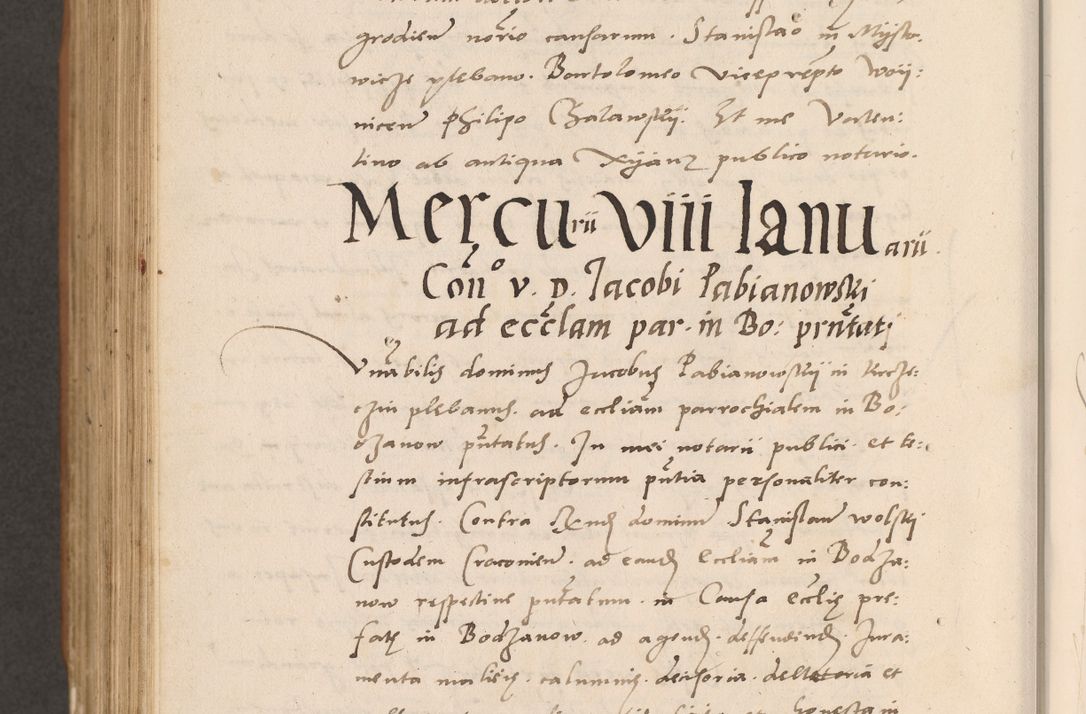 grodien nōrio causarum. Stanislao in Mysto
wicze plebano. Bartolomeo Vicepręnto Woy:
nicen Philipo Gzalawskÿ. Et me Valen:
tino ab antiqua Xyanz publico notario.
Mercurii VIII Ianuarii.
Con° v. D. Iacobi Pabianowski
ad eccłam par. in Bo: prntati
Vnabilis dominus Iacobus Pabianowskÿ in Recze:
czin plebanus. ad eccliam parrochialem in Bo:
dzanow pntatus. In mei notarii publici et te:
stium infrascriptorum pntia personaliter con:
stitutus. Contra Rndum dominum Stanislaum Wolski
Custodem Cracovien. ad eandem Eccliam in Bodza:
now respective pntatum. in Causa Ecclię pre:
fatę in Bodzanow. ad agendum. deffendendum. Iura:
menta malicię. calumnię. decisoria. dellatoria et
honesta in